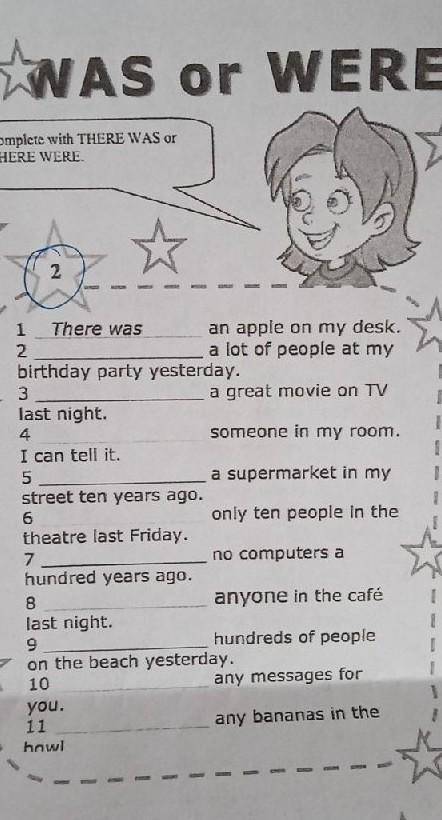 WAS or WERE
omplete with THERE WAS or
HERE WERE.
2
1 There was an apple on my desk.
2 ____________ a lot of people at my
birthday party yesterday.
3 ____________ a great movie on TV
last night.
4 ____________ someone in my room.
I can tell it.
5 ____________ a supermarket in my
street ten years ago.
6 ____________ only ten people in the
theatre last Friday.
7 ____________ no computers a
hundred years ago.
8 ____________ anyone in the café
last night.
9 ____________ hundreds of people
on the beach yesterday.
10 ____________ any messages for
you.
11 ____________ any bananas in the
bowl